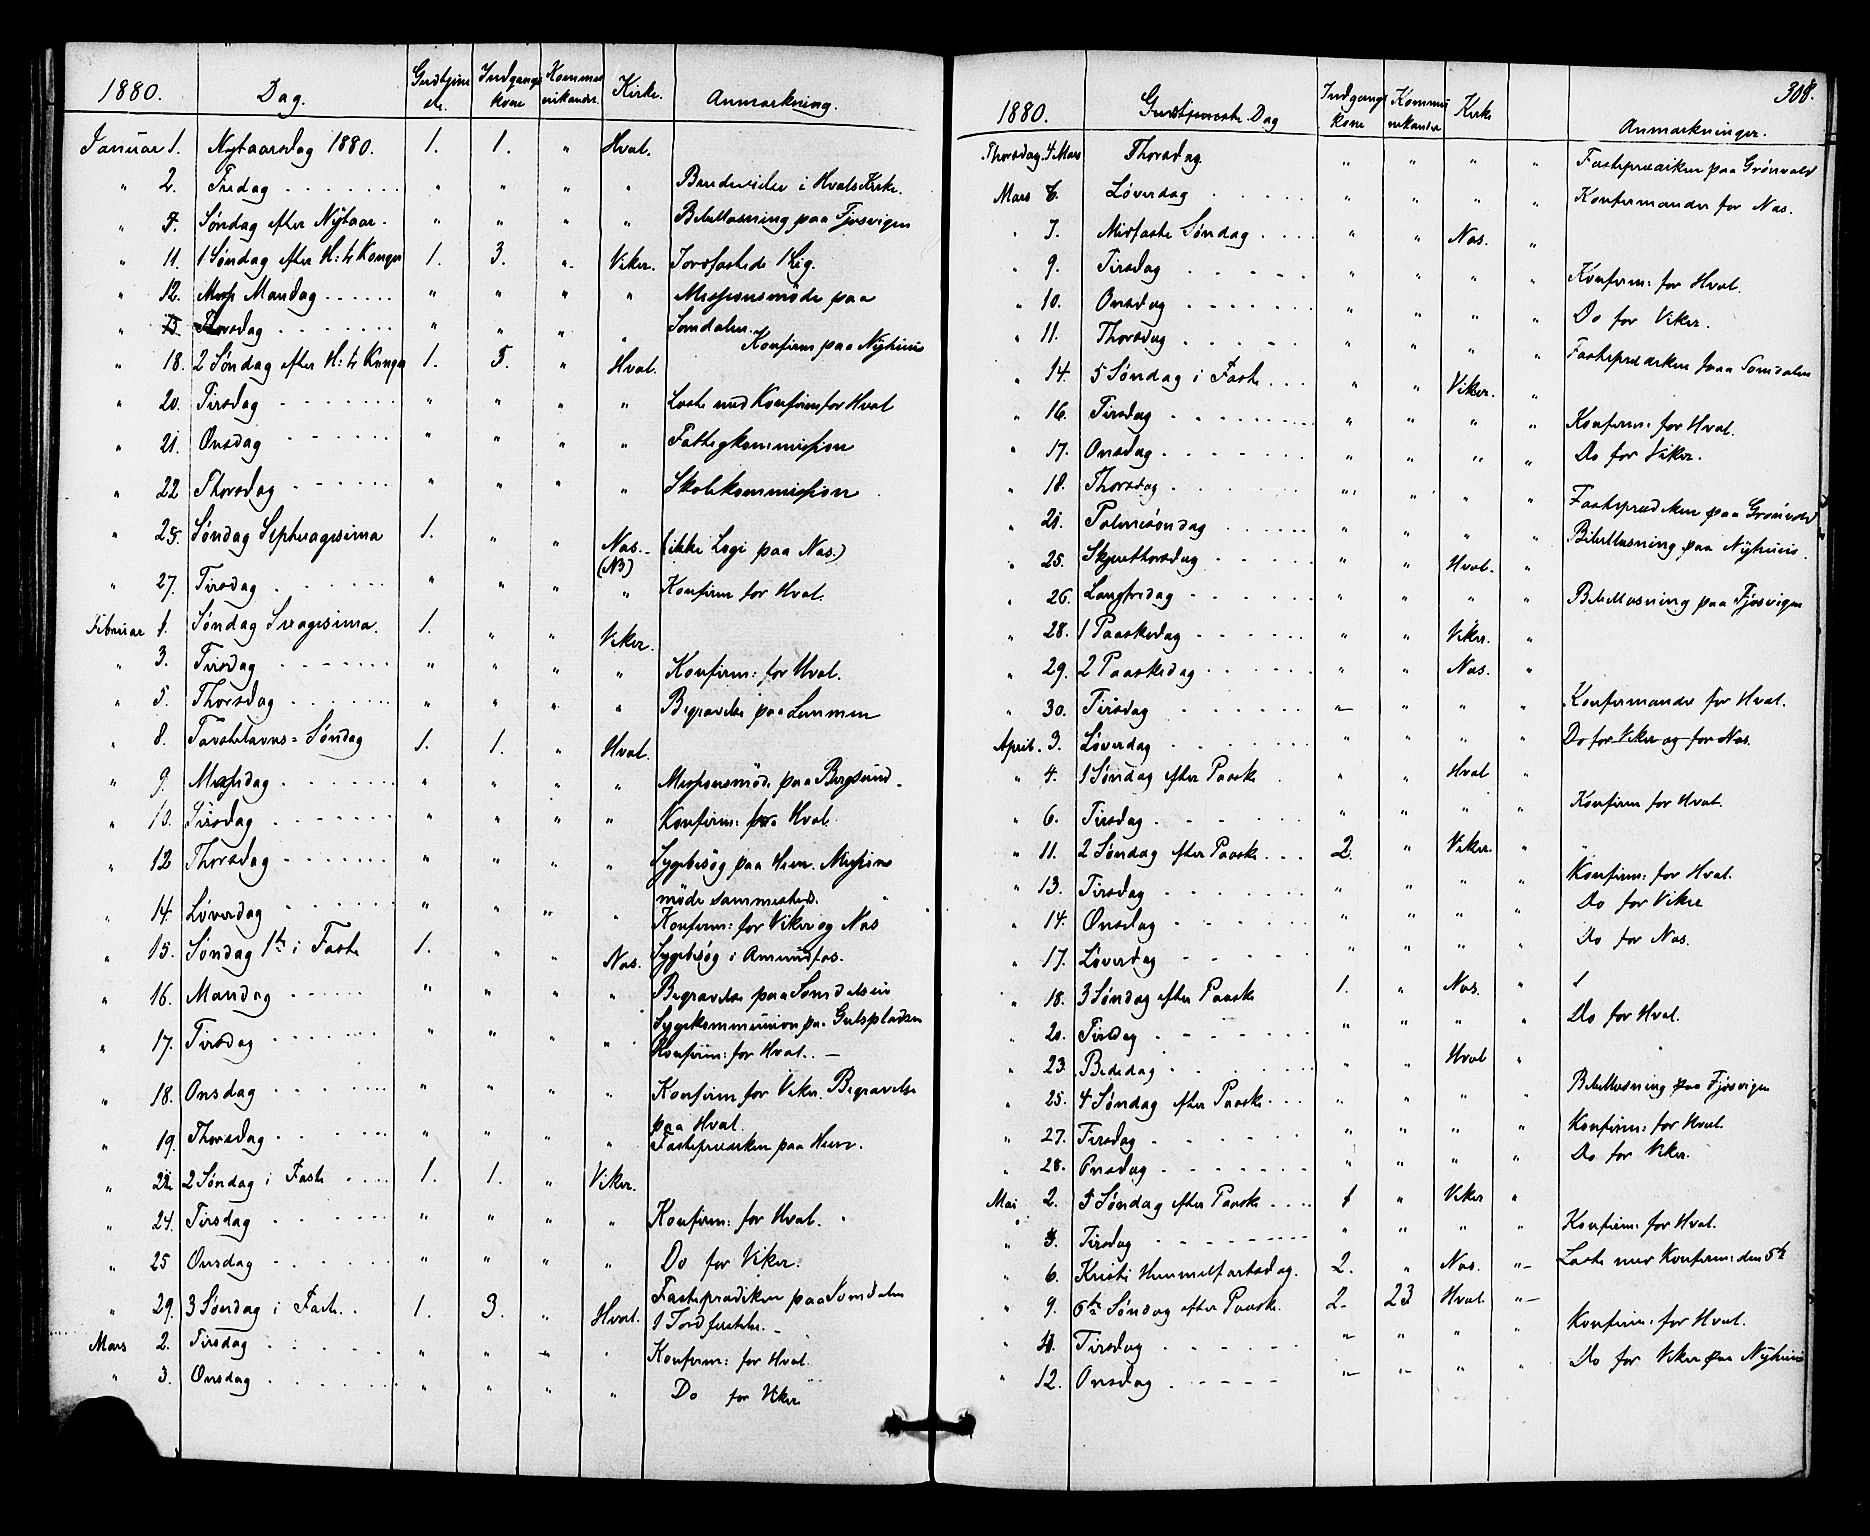 1880. Dag. Gudstjene ste. Indgangs kone Kommu nikanter. Kirke. Anmærkning.
Januar 1. Nytaarsdag 1880. 1. 1. " Hval.
" 2. Fredag " " " " i Hvals Kirke.
" 4. Søndag efter Nytaar. " " " " Bibellæsning paa Fjøsvigen
" 11. 1 Søndag efter H: 3 Konger 1. 3. " Viker. Jordfæstede 1 Lig.
" 12. Mandag " " " " Missionsmøde paa
" 15. Thorsdag " " " " Somdalen. Konfirm paa Nyhuus
" 18. 2 Søndag efter H: 3 Konger 1. 5. " Hval.
" 20. Tirsdag " " " " Læste med Konfirm for Hval
" 21. Onsdag " " " " Fattigkommission
" 22 Thorsdag " " " " Skolekommission
" 25. Søndag Septuagesima 1. " " Næs. (NB) (ikke Logi paa Næs.)
" 27. Tirsdag " " " " Konfirm for Hval.
Februar 1. Søndag Sexagesima. 1. " " Viker.
" 3. Tirsdag " " " " Konfirm: for Hval.
" 5. Thorsdag " " " " Begravelse paa Lunmen
" 8. Fastelavns-Søndag 1. 1. " Hval.
" 9. " " " " Missionsmøde paa Bergsund
" 10. Tirsdag " " " " Konfirm: for Hval
" 12 Thorsdag " " " " Sygebesøg paa Heen. Missions
møde sammesteds.
" 14. Løverdag " " " " Konfirm: for Viker og Næs
" 15. Søndag 1ste i Faste 1. " " Næs. Sygebesøg i Amundfos.
" 16. Mandag " " " " Begravelse paa Somdalen
Sygekommunion paa Gulspladsen
" 17. Tirsdag " " " " Konfirm: for Hval.
" 18. Onsdag " " " Konfirm for Viker. Begravelse
paa Hval.
" 19. Thorsdag " " " " Fasteprædiken paa Heen.
" 22. 2 Søndag i Faste 1. 1. " Viker.
" 24. Tirsdag " " " " Konfirm: for Hval.
" 25 Onsdag " " " " Do for Viker.
" 29. 3 Søndag i Faste. 1. 3. " Hval. Fasteprædiken paa Somdalen
1 Jordfæstelse.
Mars 2. Tirsdag " " " " Konfirm: for Hval.
" 3. Onsdag " " " " Do for Viker
308.
1880. Gudstjeneste Dag Indgangs kone Kommu nikanter Kirke Anmærkninger.
Thorsdag 4 Mars Thorsdag " " " " Fasteprædiken paa Grønvold
Mars 6. Løverdag " " " " Konfirmander for Næs.
" 7. Midfaste Søndag " " Næs. "
" 9. Tirsdag " " " " Konfirm: for Hval.
" 10. Onsdag " " " " Do for Viker.
" 11. Thorsdag " " " " Fasteprædiken paa Somdalen
" 14. 5 Søndag i Faste " " Viker. "
" 16. Tirsdag " " " " Konfirm: for Hval.
" 17. Onsdag " " " " Do for Viker.
" 18. Thorsdag " " " " Fasteprædiken paa Grønvold
" 21. Palmesøndag " " " " Bibellæsning paa Nyhuus.
" 25. Skjærthorsdag " " Hval. "
" 26. Langfredag " " " " Bibellæsning paa Fjøsvigen
" 28. 1 Paaskedag " " Viker. "
" 29. 2 Paaskedag " " Næs. "
" 30. Tirsdag " " " " Konfirmander for Hval.
April. 3. Løverdag " " " " Do for Viker og for Næs.
" 4. 1 Søndag efter Paaske " " Hval "
" 6. Tirsdag " " " " Konfirm for Hval.
" 11. 2 Søndag efter Paaske 2. " Viker. " "
" 13. Tirsdag " " " " Konfirm: for Hval.
" 14. Onsdag " " " " Do for Viker
" 17. Løverdag " " " " Do for Næs.
" 18. 3 Søndag efter Paaske 1. " Næs. "
" 20. Tirsdag " " " " Do for Hval.
" 23. Bededag " " Hval "
" 25. 4 Søndag efter Paaske " " " " Bibellæsning paa Fjøsvigen
" 27. Tirsdag " " " " Konfirm: for Hval.
" 28. Onsdag " " " " Do for Viker.
Mai 2. 5 Søndag efter Paaske 1 " Viker "
" 4. Tirsdag " " " " Konfirm: for Hval.
" 6. Kristi Himmelfartsdag. 2. " Næs. " Læste med Konfirm: den 5te
" 9. 6te Søndag efter Paaske. 2. 23 Hval. "
" 11. Tirsdag " " " " Konfirm: for Hval.
" 12. Onsdag " " " " Do for Viker paa Nyhuus